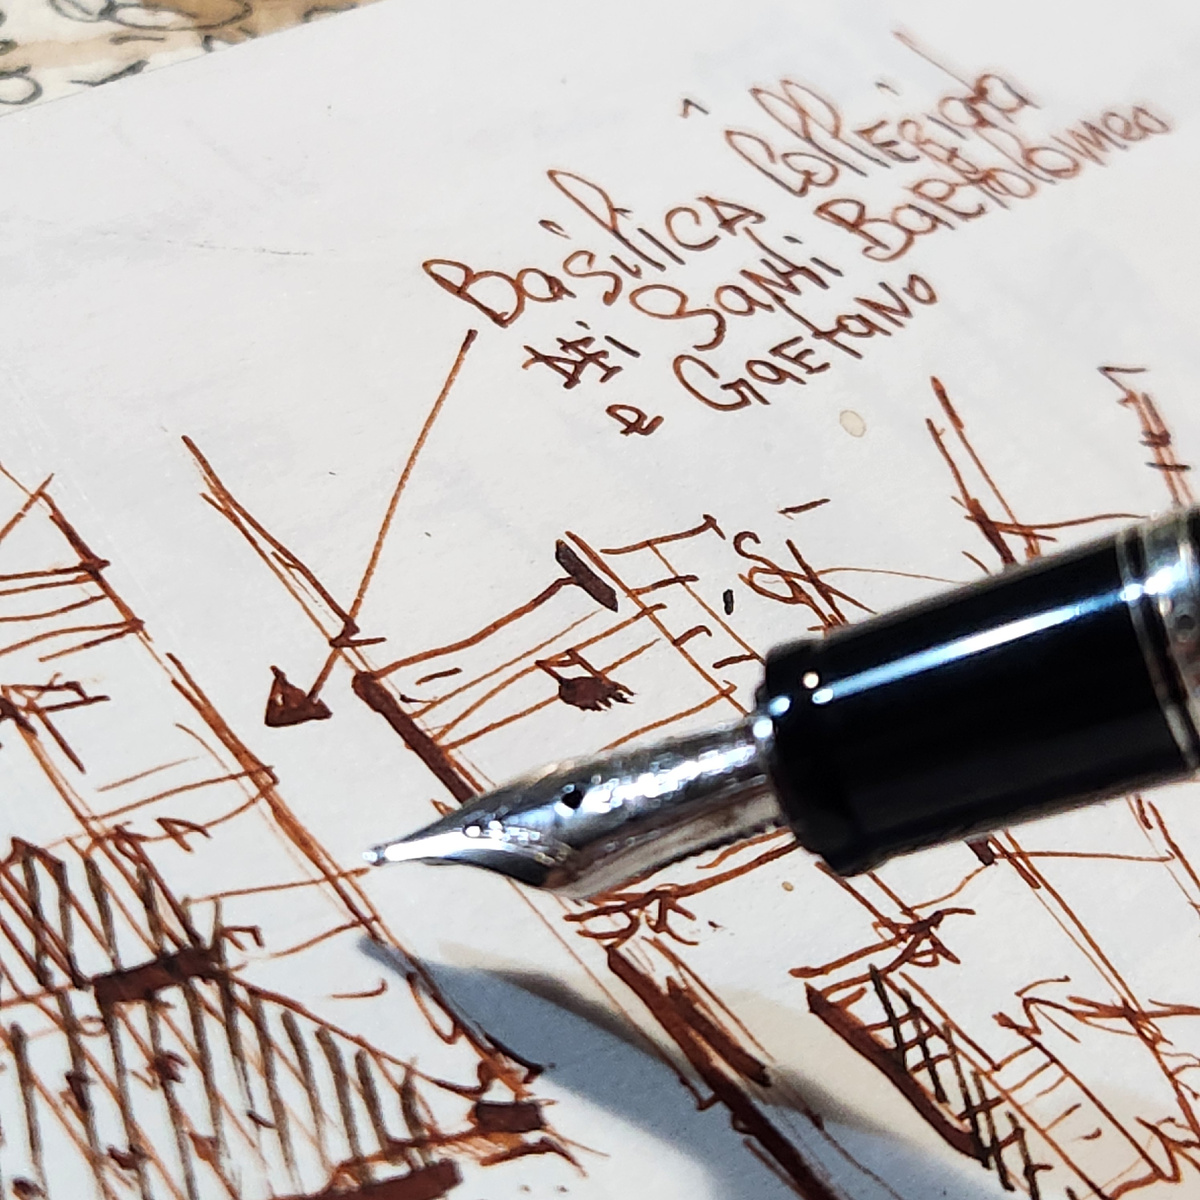 Basilica Collegiata
dei Santi Bartolomeo
e Gaetano